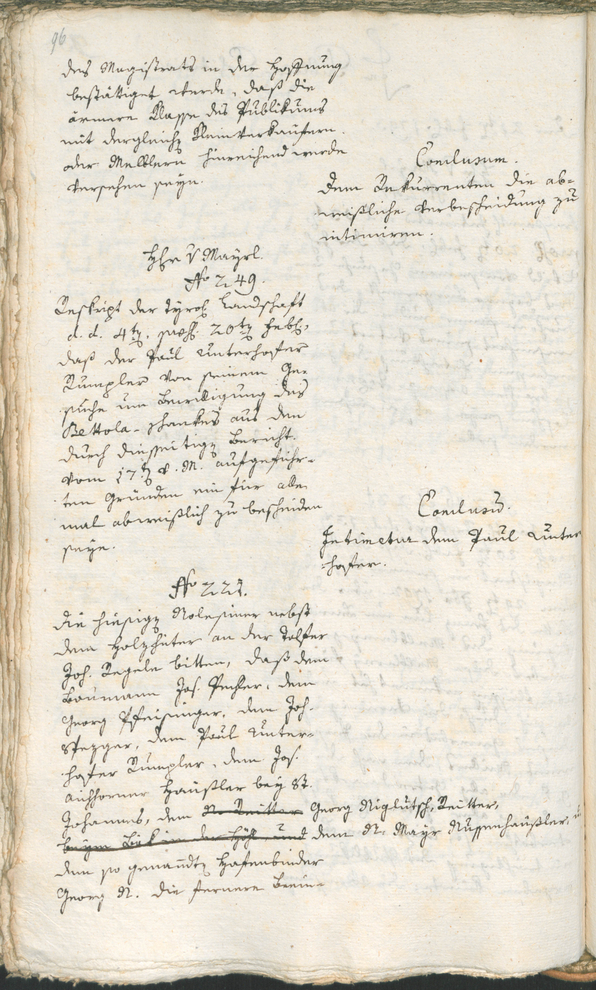 96
des Magistrats in der Hoffnung
bestättiget werde, daß die
ärmere Klasse des Publikums
mit dergleich Kleinverkaufern
oder Melblern hinreichend werde
versehen seyn.
Conclusum.
Dem Rekurrenten die ab-
weißliche Verbescheidung zu
intimiren.
Hhr v Mayrl.
No 249.
Reskript der Tyrol. Landschaft
d. d. 4tn, 20tn Febl.
daß der Paul Unterhofer
Rumpler von seinem Ge-
suche um Bewilligung des
Bettola-schankes aus den
durch diesseitign Bericht
vom 17tn v. M. aufgeführ-
ten Gründen ein für alle-
mal abweißlich zu bescheiden
seye.
Conclusū.
Intimetur dem Paul Unter
hofer.
No 221.
Die hiesign Rolesiner nebst
dem Holzhüter an der Talfer
Joh. Regele bitten, daß dem
Baumann Jos. dem
Georg Pfeisinger, dem Joh.
Spegger, dem Paul Unter-
hofer Rumpler, dem Jos.
Aichhorner Häusler bey St.
Johannes, dem Georg Niglutsch, Reitter,
dem N. Mayr Russenhäußler,
dem so genanndtn Hafenbinder
Georg N. die fernere Brein-